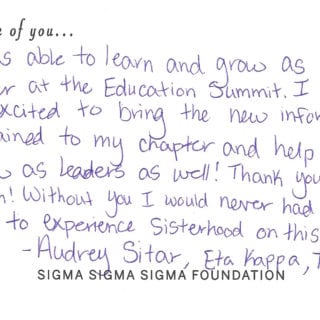 of you...
s able to learn and grow as
r at the Education Summit. I
xcited to bring the new infor
ained to my chapter and help
as leaders as well! Thank you
! Without you I would never had
to experience Sisterhood on this
-Audrey Sitar, Eta Kappa, T
SIGMA SIGMA SIGMA FOUNDATION